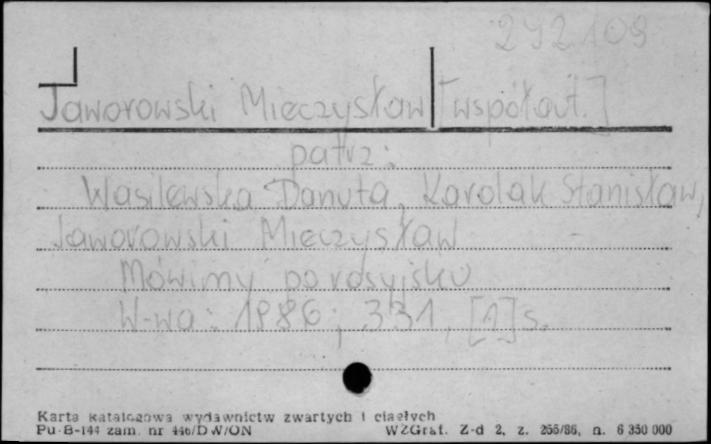 292109
Jaworowski Mieczysław [współaut.]
patrz:
Wasilewska Danuta, Karolak Stanisław,
Jaworowski Mieczysław
Mówimy po rosyjsku
W-wa: 1986; 331, [1] s.
Karta katalogowa wydawnictw zwartych i ciągłych
Pu-B-144 zam. nr 446/DW/ON WZGraf. Z-d 2, z. 256/86, n. 6 350 000